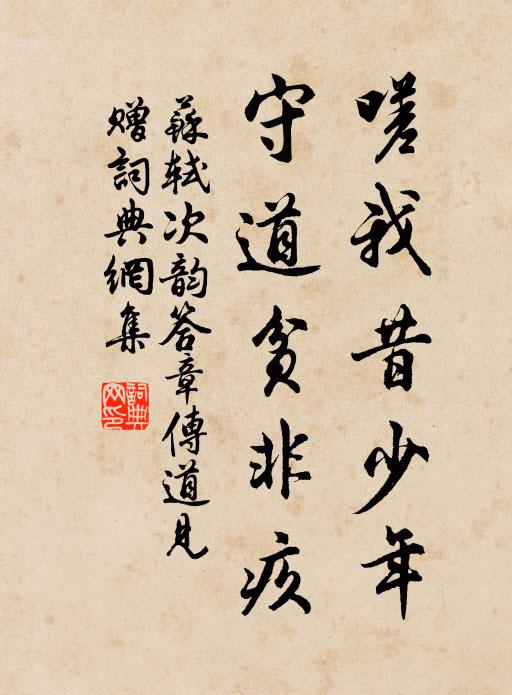 嗟我昔少年
守道貧非疚
蘇軾次韵答章傳道見
贈詞典網集
詞典
网印